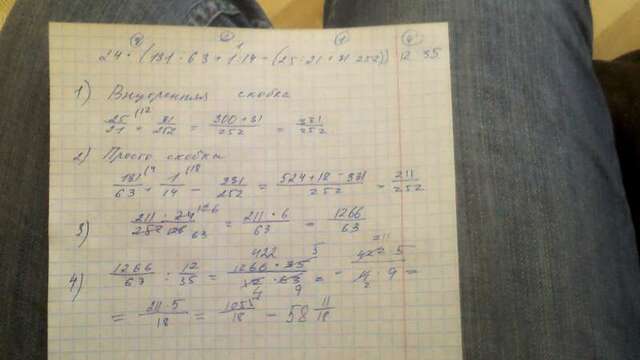 ③ ② ① ④
24 · (131 : 63 + 1 : 14 - (25 : 21 + 31 : 252)) : 12 : 35
1) Внутренняя скобка
25/21 (12 + 31/252 = 300 + 31/252 = 331/252
2) Просто скобки
131/63 (4 + 1/14 (18 - 331/252 = 524 + 18 - 331/252 = 211/252
3) 211 · 24 12 6/252 126 63 = 211 · 6/63 = 1266/63
4) 1266/63 : 12/35 = 422 5 1266 · 35/12 · 63 4 9 = 211 422 · 5/4 2 · 9 =
= 211 · 5/18 = 1055/18 = 58 11/18